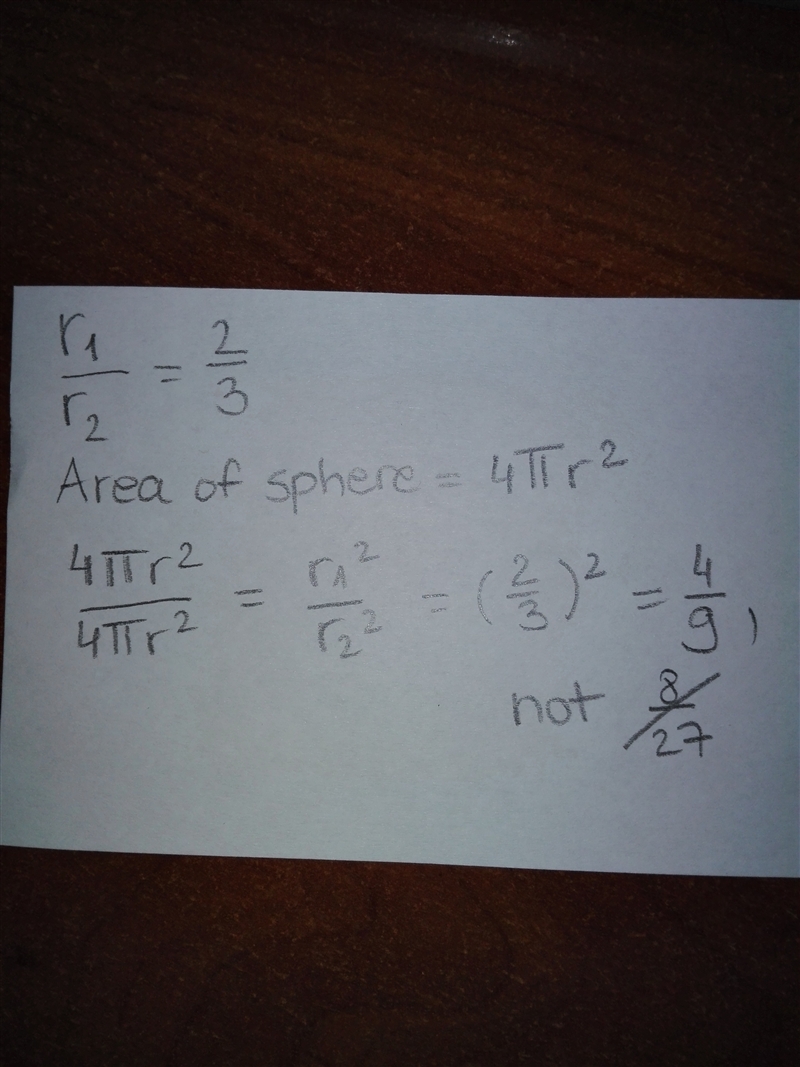 r₁/r₂ = 2/3
Area of sphere = 4πr²
4πr²/4πr² = r₁²/r₂² = (2/3)² = 4/9,
not 8/27